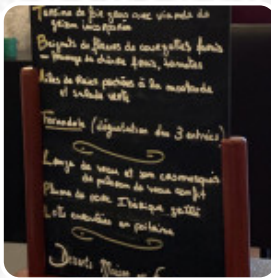 Terrine de foie gras avec viande de
grison
Beignets de fleurs de courgettes farcis
au fromage de chèvre frais, tomates
Ailes de Raies pochées à la moutarde
et salade verte
Farandole (dégustation des 3 entrées)
Longe de veau et son
de poitrine de veau confit
Pluma de porc Ibérique grillé
Lotte en
Desserts Maison